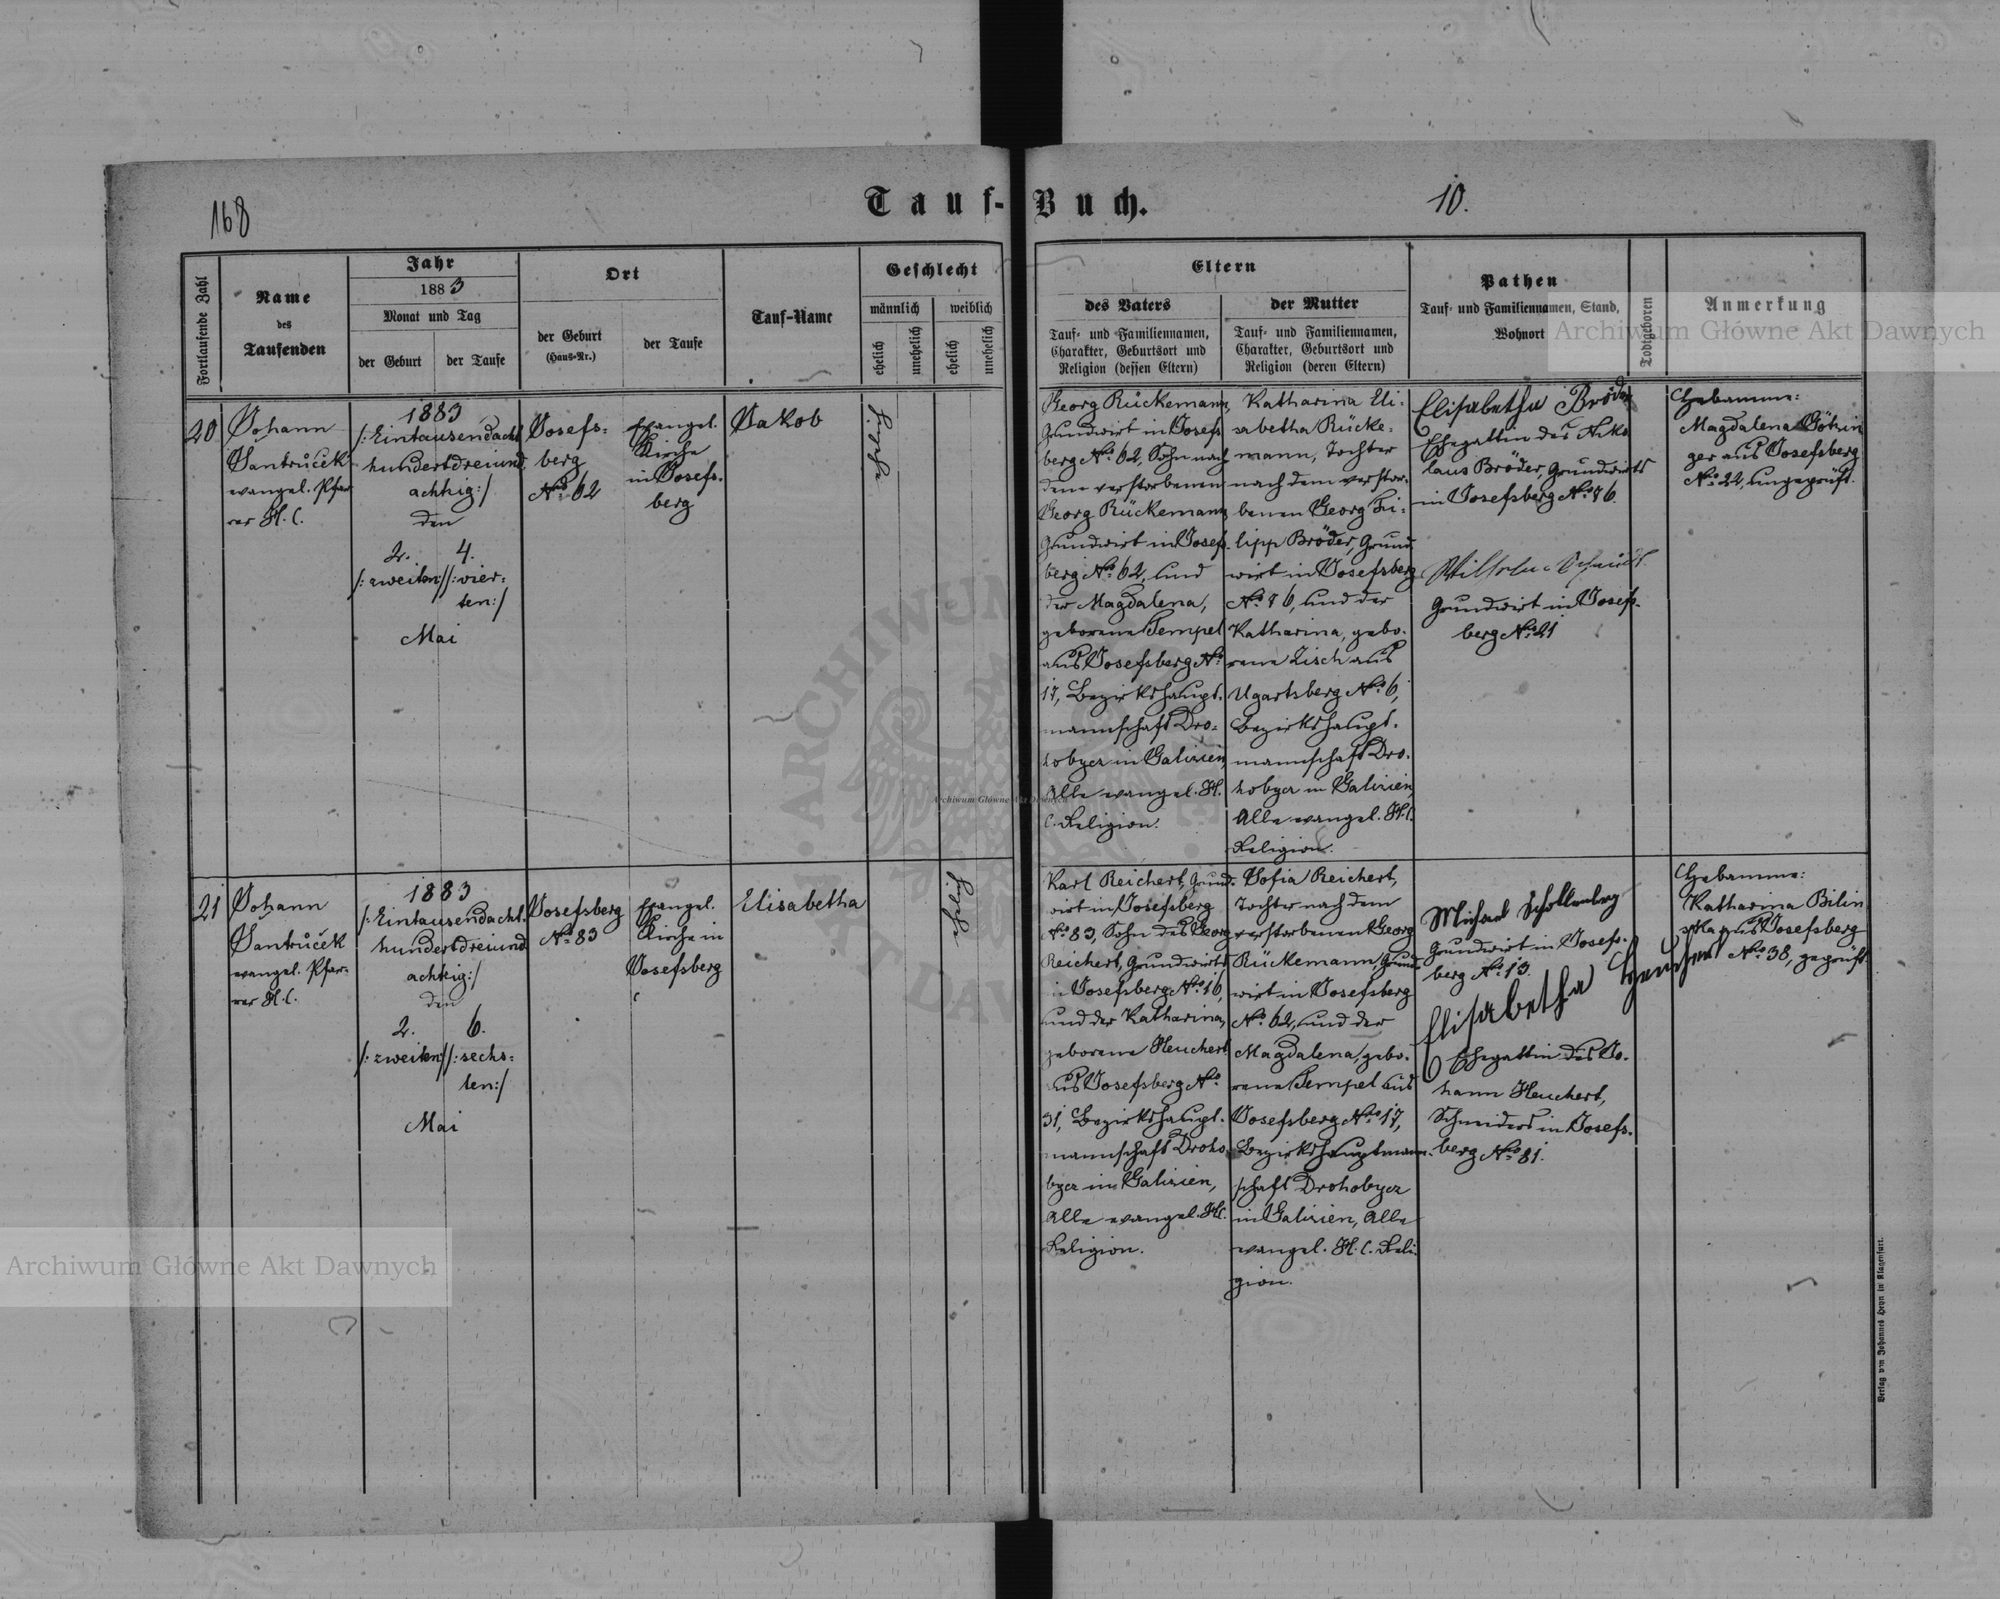 168
Tauf-Buch.
10.
Fortlaufende Zahl
Name
des
Taufenden
Jahr
1883
Monat und Tag
der Geburt
der Taufe
Ort
der Geburt
(Haus-Nr.)
der Taufe
Tauf-Name
Geschlecht
männlich
weiblich
ehelich
unehelich
ehelich
unehelich
Eltern
des Vaters
Tauf- und Familiennamen,
Charakter, Geburtsort und
Religion (dessen Eltern)
der Mutter
Tauf- und Familiennamen,
Charakter, Geburtsort und
Religion (deren Eltern)
Pathen
Tauf- und Familiennamen, Stand,
Wohnort
Todtgeboren
Anmerkung
20
Johann
Jantruček
evangel. Pfar
rer H. C.
1883
/: Eintausendacht
hundertdreiund
achtzig :/
den
2.
/: zweiten :/
4.
/: vier-
ten :/
Mai
Josefs-
berg
No. 62
Evangel.
Kirche
in Josefs-
berg
Jakob
ehelich
Georg Rückemann,
Grundwirt in Josefs
berg No. 62, Sohn nach
dem verstorbenen
Georg Rückemann
Grundwirt in Josefs-
berg No. 62, und
der Magdalena,
geborene Tempel
aus Josefsberg No.
17, Bezirkshaupt-
mannschaft Dro-
hobycz in Galizien,
Alle evangel. H.
C. Religion.
Katharina Eli-
sabetha Rücke-
mann, Tochter
nach dem verstor-
benen Georg Fi-
lipp Bröder, Grund
wirt in Josefsberg
No. 76, und der
Katharina, gebo-
rene Zisch aus
Ugartsberg No. 6,
Bezirkshaupt-
mannschaft Dro-
hobycz in Galizien,
Alle evangel. H. C.
Religion.
Elisabetha Bröder
Ehegattin des Niko
laus Bröder, Grundwirts
in Josefsberg No. 76.
Wilhelm Schmidt
Grundwirt in Josefs-
berg No. 21
Hebamme:
Magdalena Göhrin
ger aus Josefsberg
No. 22, ungeprüft.
21
Johann
Jantruček
evangel. Pfar-
rer H. C.
1883
/: Eintausendacht
hundertdreiund
achtzig :/
den
2.
/: zweiten :/
6.
/: sechs-
ten :/
Mai
Josefsberg
No. 83
Evangel.
Kirche in
Josefsberg
Elisabetha
ehelich
Karl Reichert, Grund-
wirt in Josefsberg
No. 83, Sohn des Georg
Reichert, Grundwirts
in Josefsberg No. 16,
und der Katharina,
geborene Heuchert
aus Josefsberg No.
31, Bezirkshaupt-
mannschaft Droho
bycz in Galizien,
Alle evangel. H. C.
Religion.
Sofia Reichert,
Tochter nach dem
verstorbenen Georg
Rückemann, Grund-
wirt in Josefsberg
No. 62, und der
Magdalena, gebo-
rene Tempel aus
Josefsberg No. 17,
Bezirkshauptmann-
schaft Drohobycz
in Galizien, Alle
evangel. H. C. Reli-
gion.
Michael Schollenberg
Grundwirt in Josefs-
berg No. 13.
Elisabetha Heuchert
Ehegattin des Jo-
hann Heuchert,
Schneiders in Josefs-
berg No. 81.
Hebamme:
Katharina Bilin
ska aus Josefsberg
No. 38, geprüft.
Verlag von Johannes Heyn in Klagenfurt.
Archiwum Główne Akt Dawnych
Archiwum Główne Akt Dawnych
Archiwum Główne Akt Dawnych